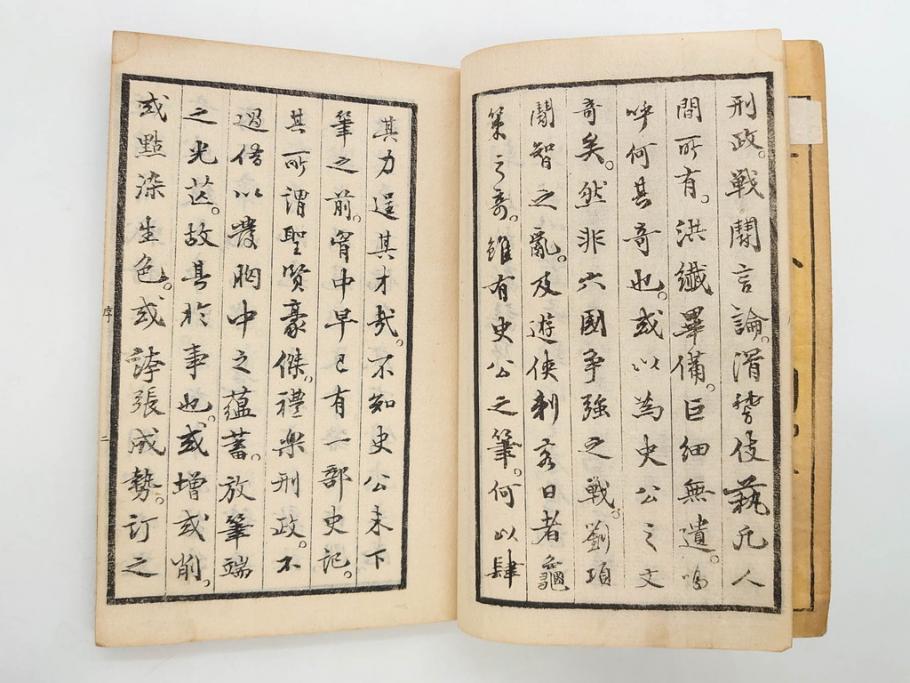 刑政。戦鬪言論。滑稽伎藝凡人
間所有。洪纖畢備。巨細無遺。嗚
呼何其奇也。或以為史公之文
奇矣。然非六國争強之戰。劉項
鬪智之亂。及遊侠刺客日者龜
策之奇。雖有史公之筆。何以肆
其力逞其才哉。不知史公未下
筆之前。胷中早已有一部史記。
其所謂聖賢豪傑。禮樂刑政。不
過借以發胸中之蘊蓄。放筆端
之光芒。故其於事也。或增或削。
或點染生色。或誇張成勢。訂之
序
二